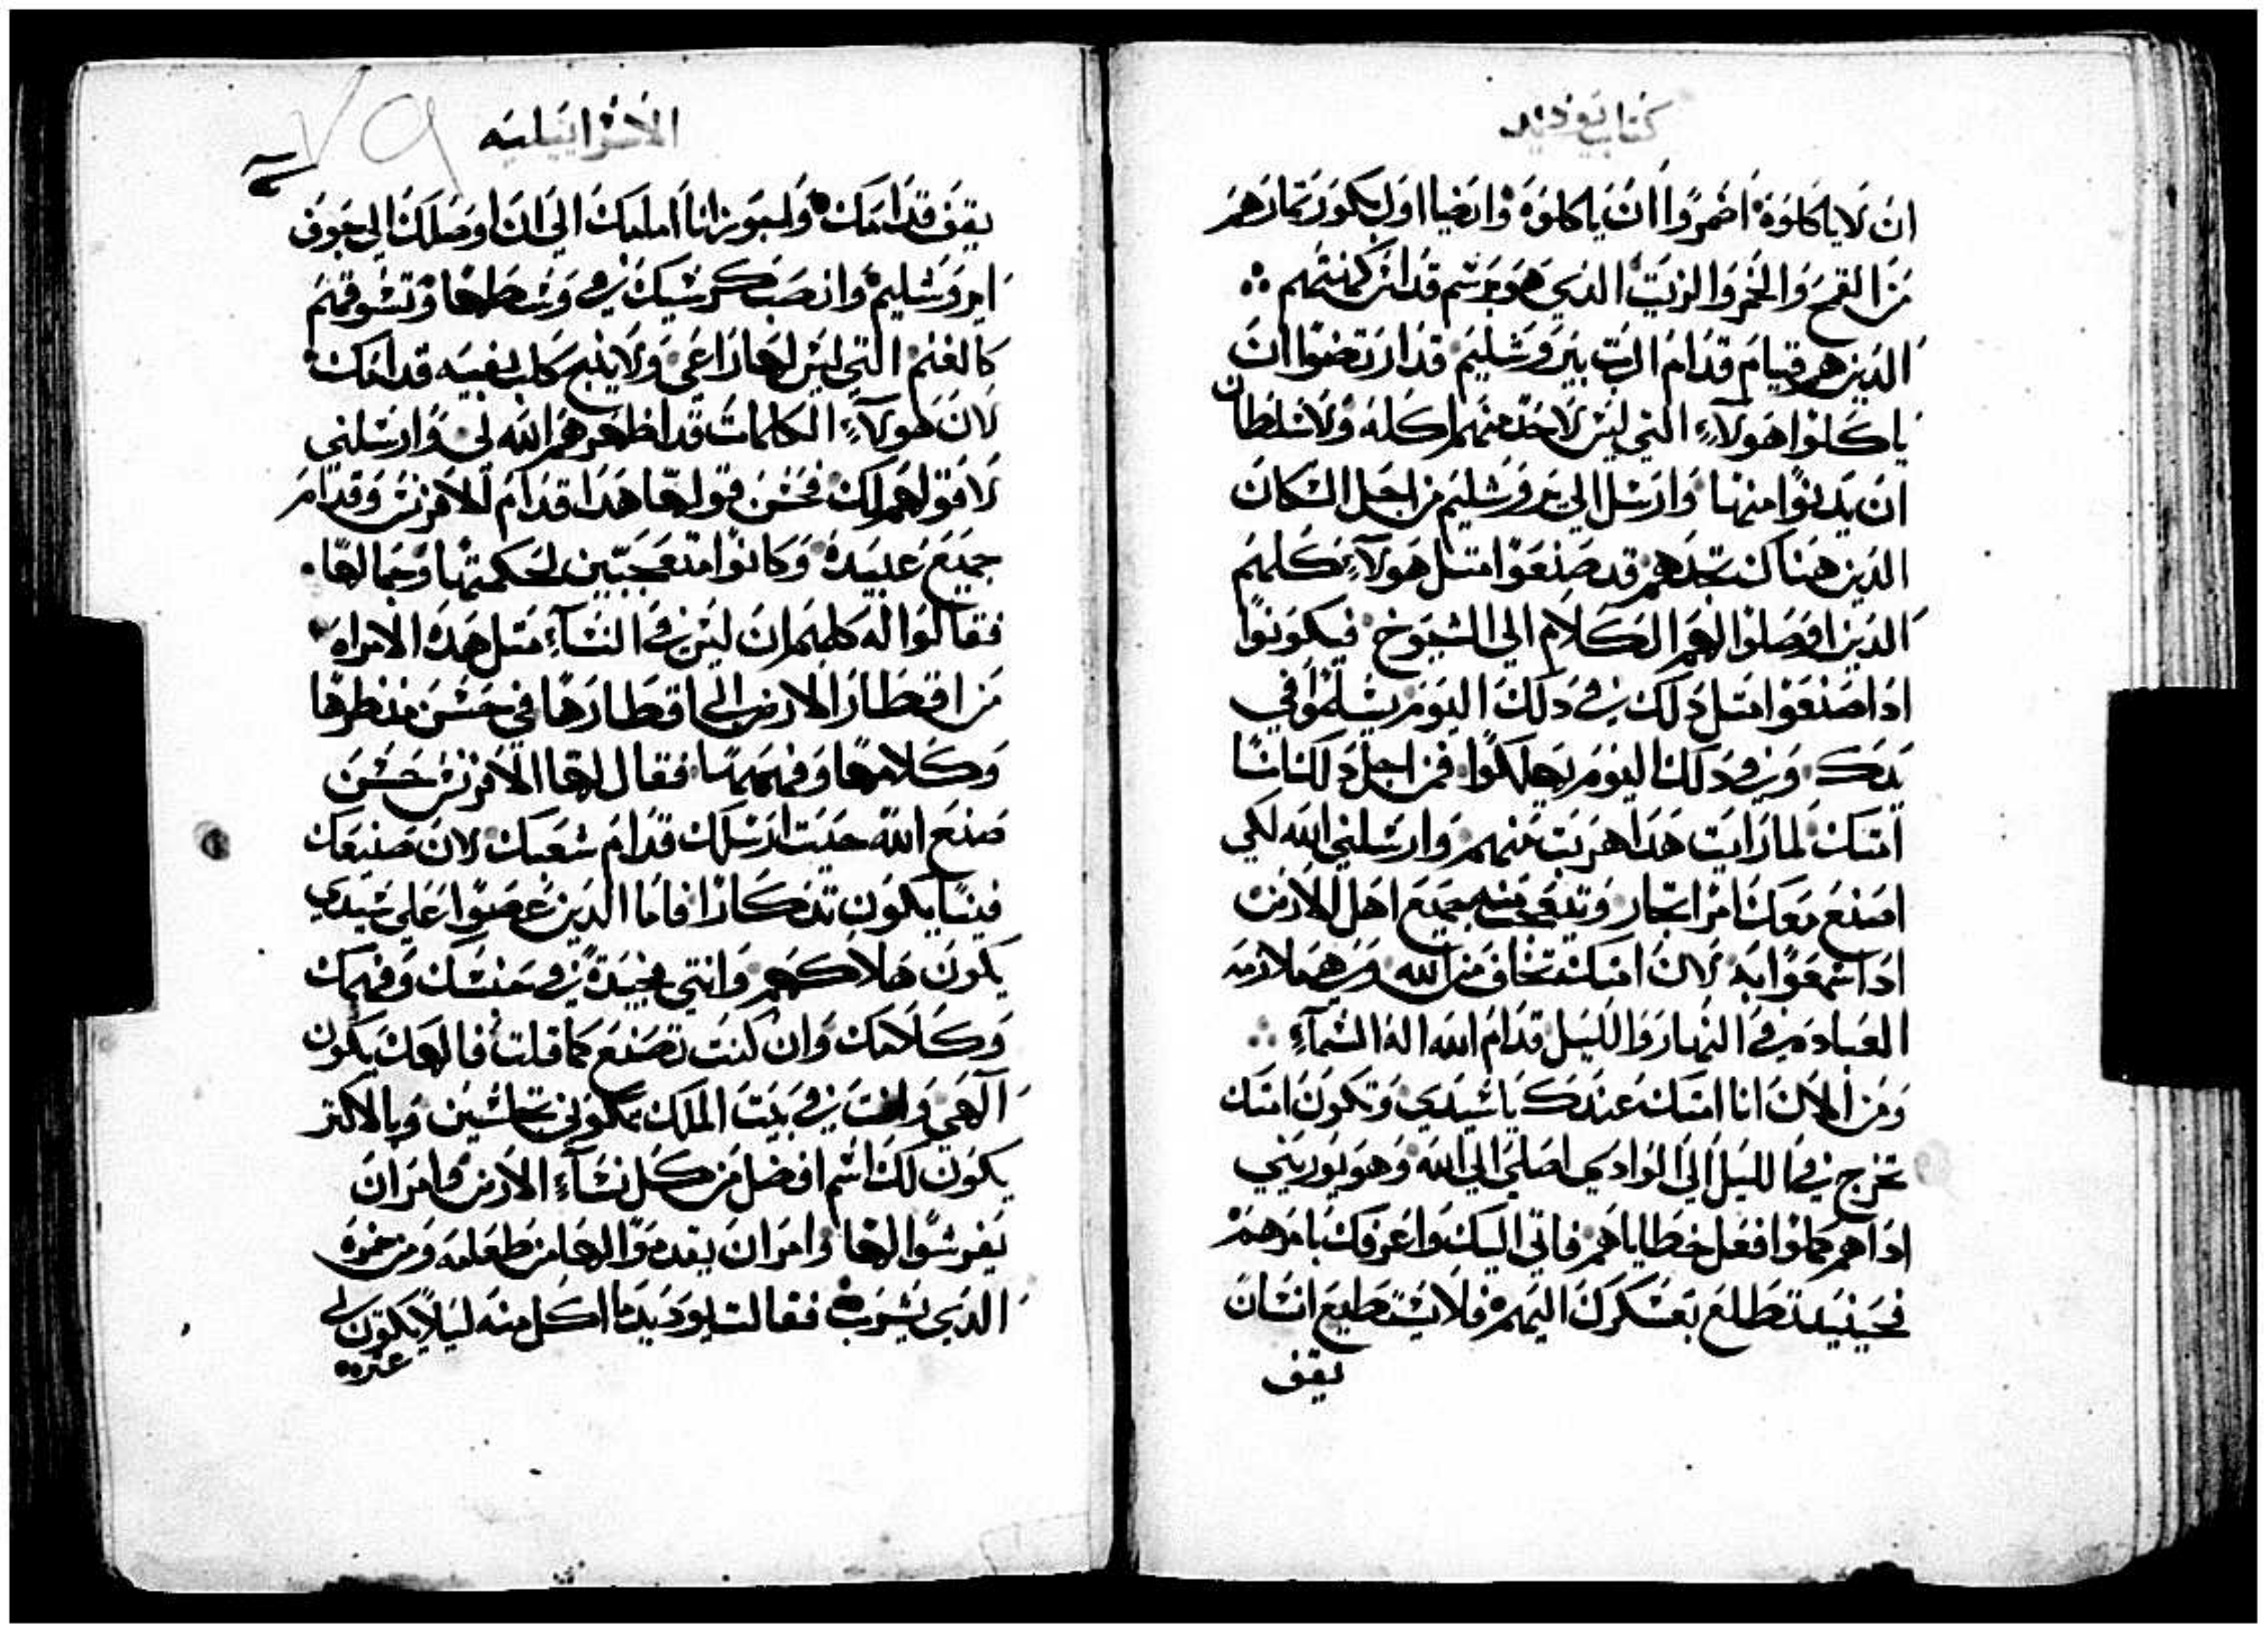 كتاب يوديد
ان لا ياكلوه اضمروا ان ياكلوه وايضا اول بكور ثمارهم
من القمح والخمر والزيت الدي هو برسم قداس كهنتهم
الدين هم قيام قدام الرب بيروشليم قد ارتضوا ان
ياكلوا هولاء التي ليس لاحد منهم اكله ولا سلطان
ان يدنوا منها وارسل الي يروشليم من اجل السكان
الدين هناك تجدهم قد صنعوا متل هولاء كلهم
الدين اوصلوا لهم الكلام الي الشيوخ فيكونوا
ادا صنعوا متل دلك في دلك اليوم يسلموا في
يدك وفي دلك اليوم يهلكوا فمن اجل دلك انا
امتك لما رايت هدا هربت منهم وارسلني الله لكي
اصنع معك امرا تتعجب منه جميع اهل الارض
ادا سمعوا به لان امتك تخاف من الله وهي ملازمه
العباده في النهار والليل قدام الله اله السماء
ومن الان انا امتك عندك يا سيدي وتكون امتك
تخرج في الليل الي الوادي اصلي الي الله وهو يوريني
ادا هم كملوا فعل خطاياهم فاتي اليك واعرفك بامرهم
فحينيد تطلع بعسكرك اليهم فلا يستطيع انسان
يقف
الاسراييليه
يقف قدامك وانا املك الي ان اوصلك الي جوف
ايروشليم وانصب كرسيك في وسطها وتسوقهم
كالغنم التي ليس لها راعي ولا ينبح كلب بفيه قدامك
لان هولاء الكلمات قد اظهرهم الله لي وارسلني
لاقولهم لك فحسن قولها هدا قدام الافرنس وقدام
جميع عبيده وكانوا متعجبين لحكمتها وجمالها
فقالوا له كلهم ان ليس في النساء متل هده الامراه
من اقطار الارض الي اقطارها في حسن منظرها
وكلامها وفهمها فقال لها الافرنس حسن
صنع الله حيت ارسلك قدام شعبك لان صنيعك
فينا يكون تدكارا فاما الدين عصوا علي سيدي
يكون هلاكهم وانتي جيده في حسنك وفهمك
وكلامك وان كنت تصنع كما قلت فالهك يكون
الهي وانت في بيت الملك تكوني تجلسين وبالاكتر
يكون لك اسم افضل من كل نساء الارض وامر ان
يفرشوا لها وامر ان يقدموا لها من طعامه ومن خمره
الدي يشربه فقالت يوديد ما اكل منه ليلا يكون لي
عتره